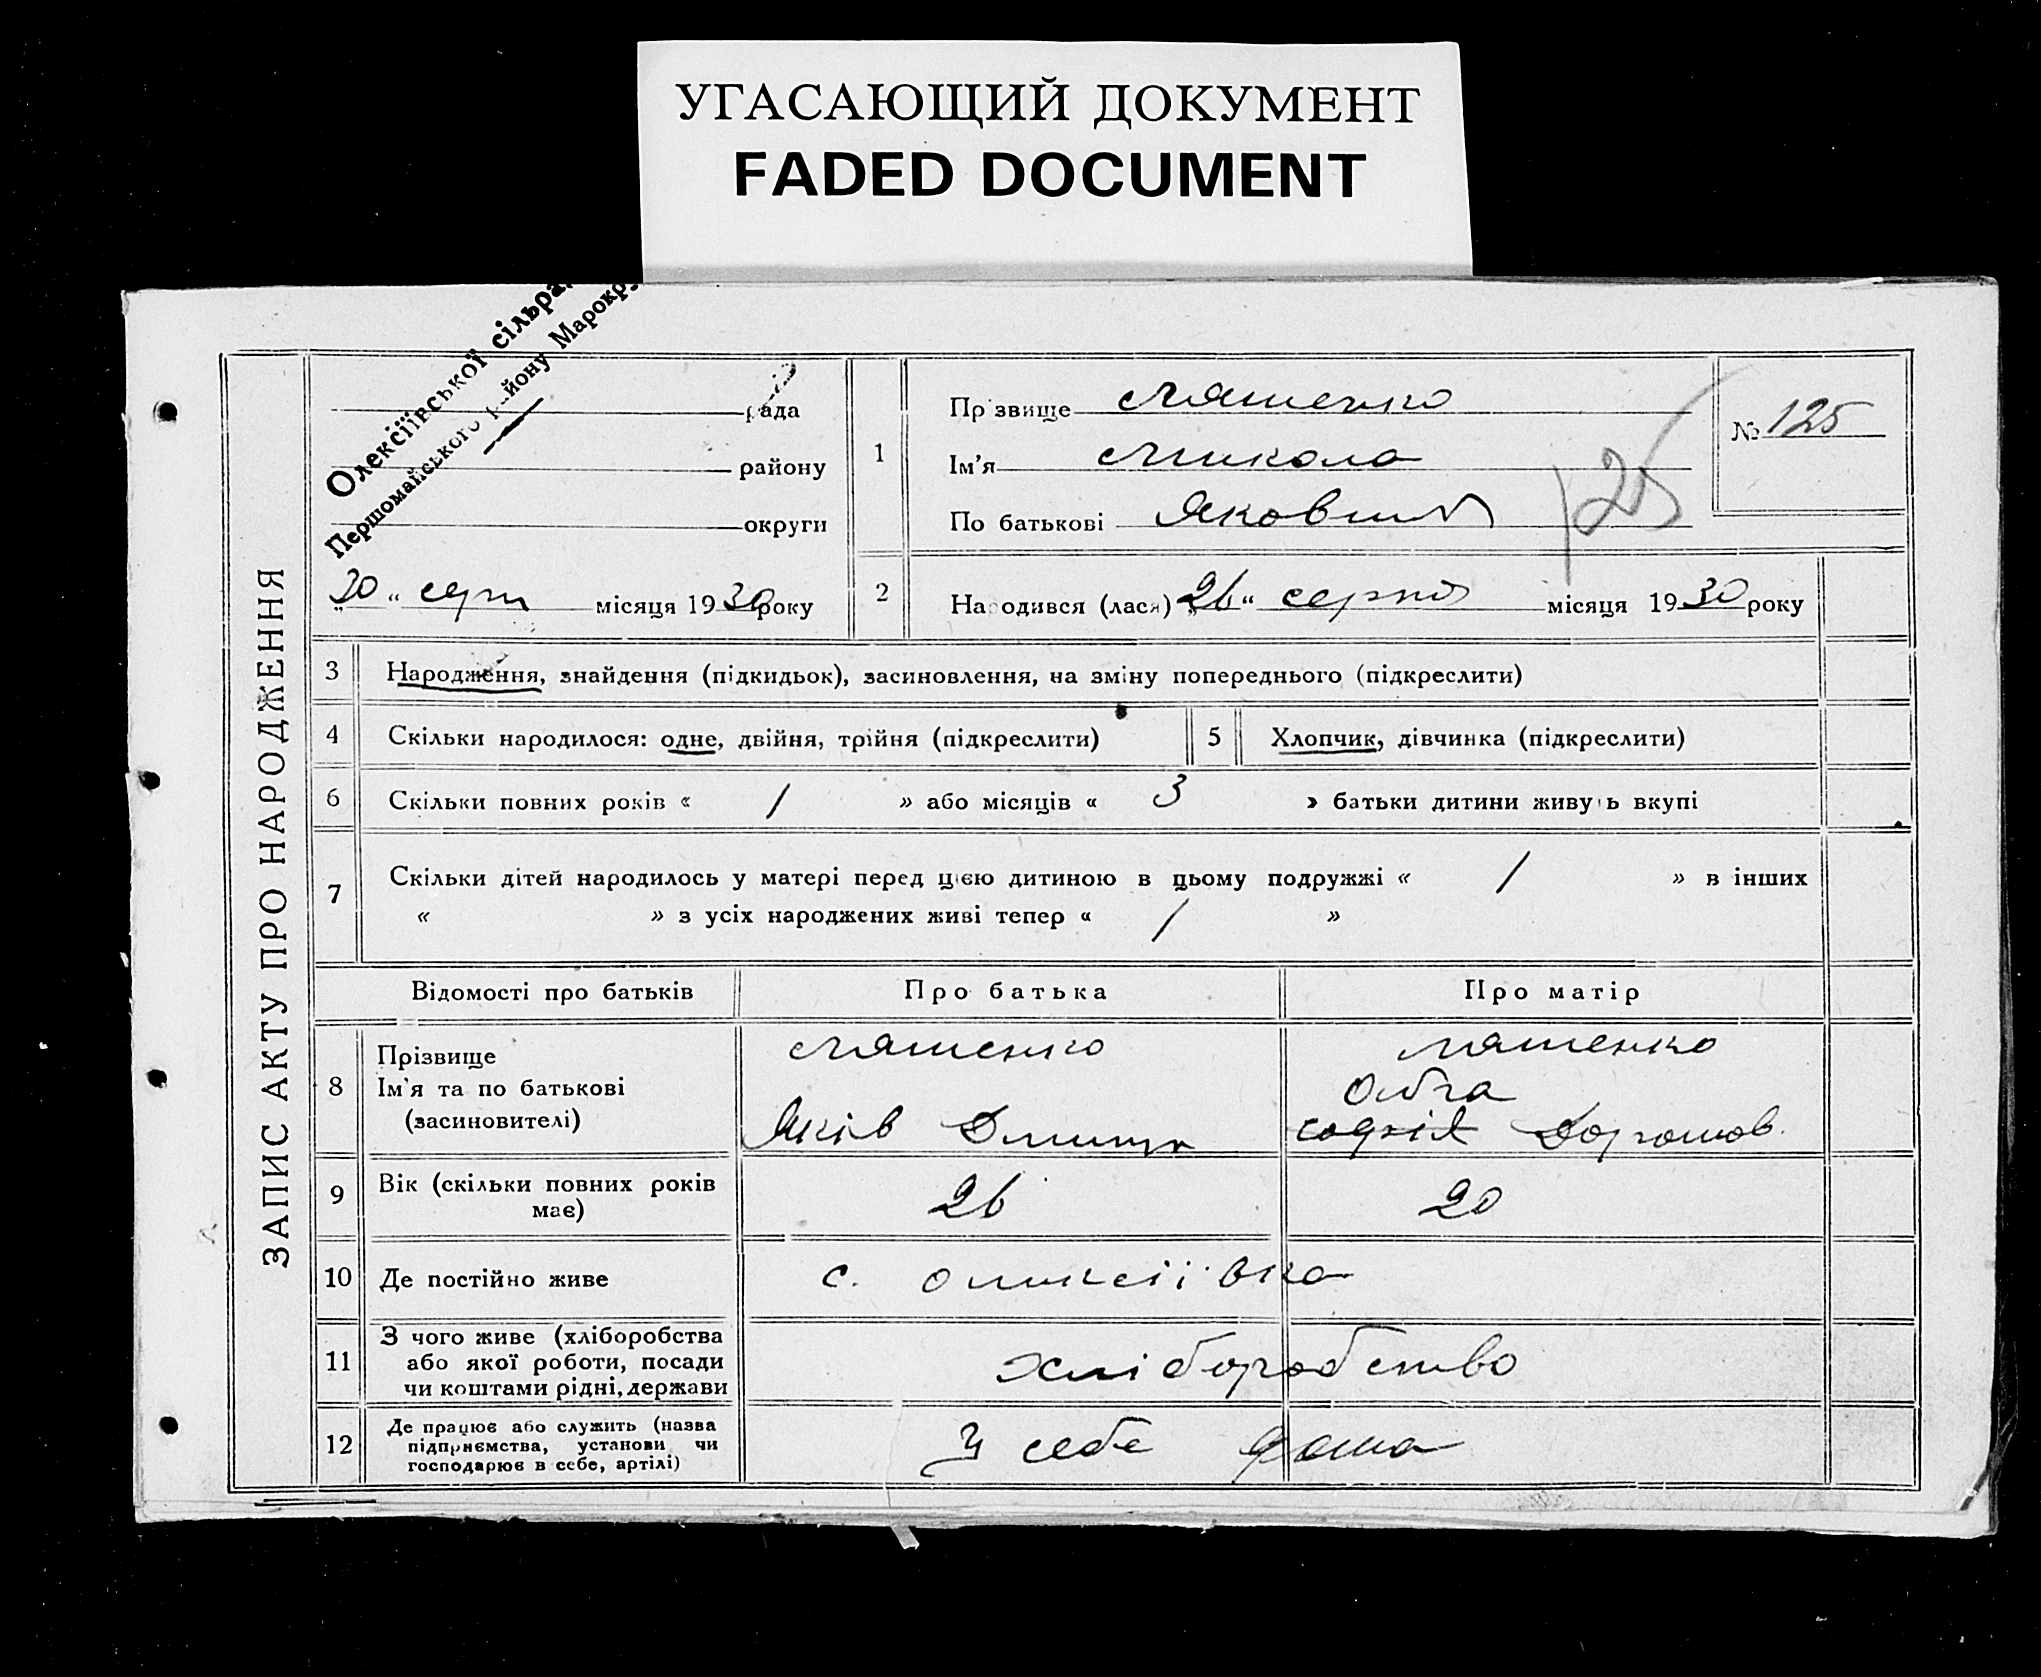 УГАСАЮЩИЙ ДОКУМЕНТ
FADED DOCUMENT
ЗАПИС АКТУ ПРО НАРОДЖЕННЯ
Олексіївської сільра
Першомайського району Марокру
рада
району
округи
„30“ серп місяця 1930 року
1
Прізвище Ляшенко
Ім’я Микола
По батькові Якович
№ 125
125
2
Народився (лася) „26“ серпня місяця 1930 року
3 Народження, знайдення (підкидьок), засиновлення, на зміну попереднього (підкреслити)
4 Скільки народилося: одне, двійня, трійня (підкреслити) 5 Хлопчик, дівчинка (підкреслити)
6 Скільки повних років « / » або місяців « 3 » батьки дитини живуть вкупі
7 Скільки дітей народилось у матері перед цією дитиною в цьому подружжі « / » в інших
« » з усіх народжених живі тепер « / »
Відомості про батьків Про батька Про матір
8 Прізвище Ляшенко Ляшенко
Ім’я та по батькові Ольга
(засиновителі) Яків Софія
9 Вік (скільки повних років має) 26 20
10 Де постійно живе с. Оликсіївка
11 З чого живе (хліборобства
або якої роботи, посади
чи коштами рідні, держави хліборобство
12 Де працює або служить (назва
підприємства, установи чи
господарює в себе, артілі) У себе дома